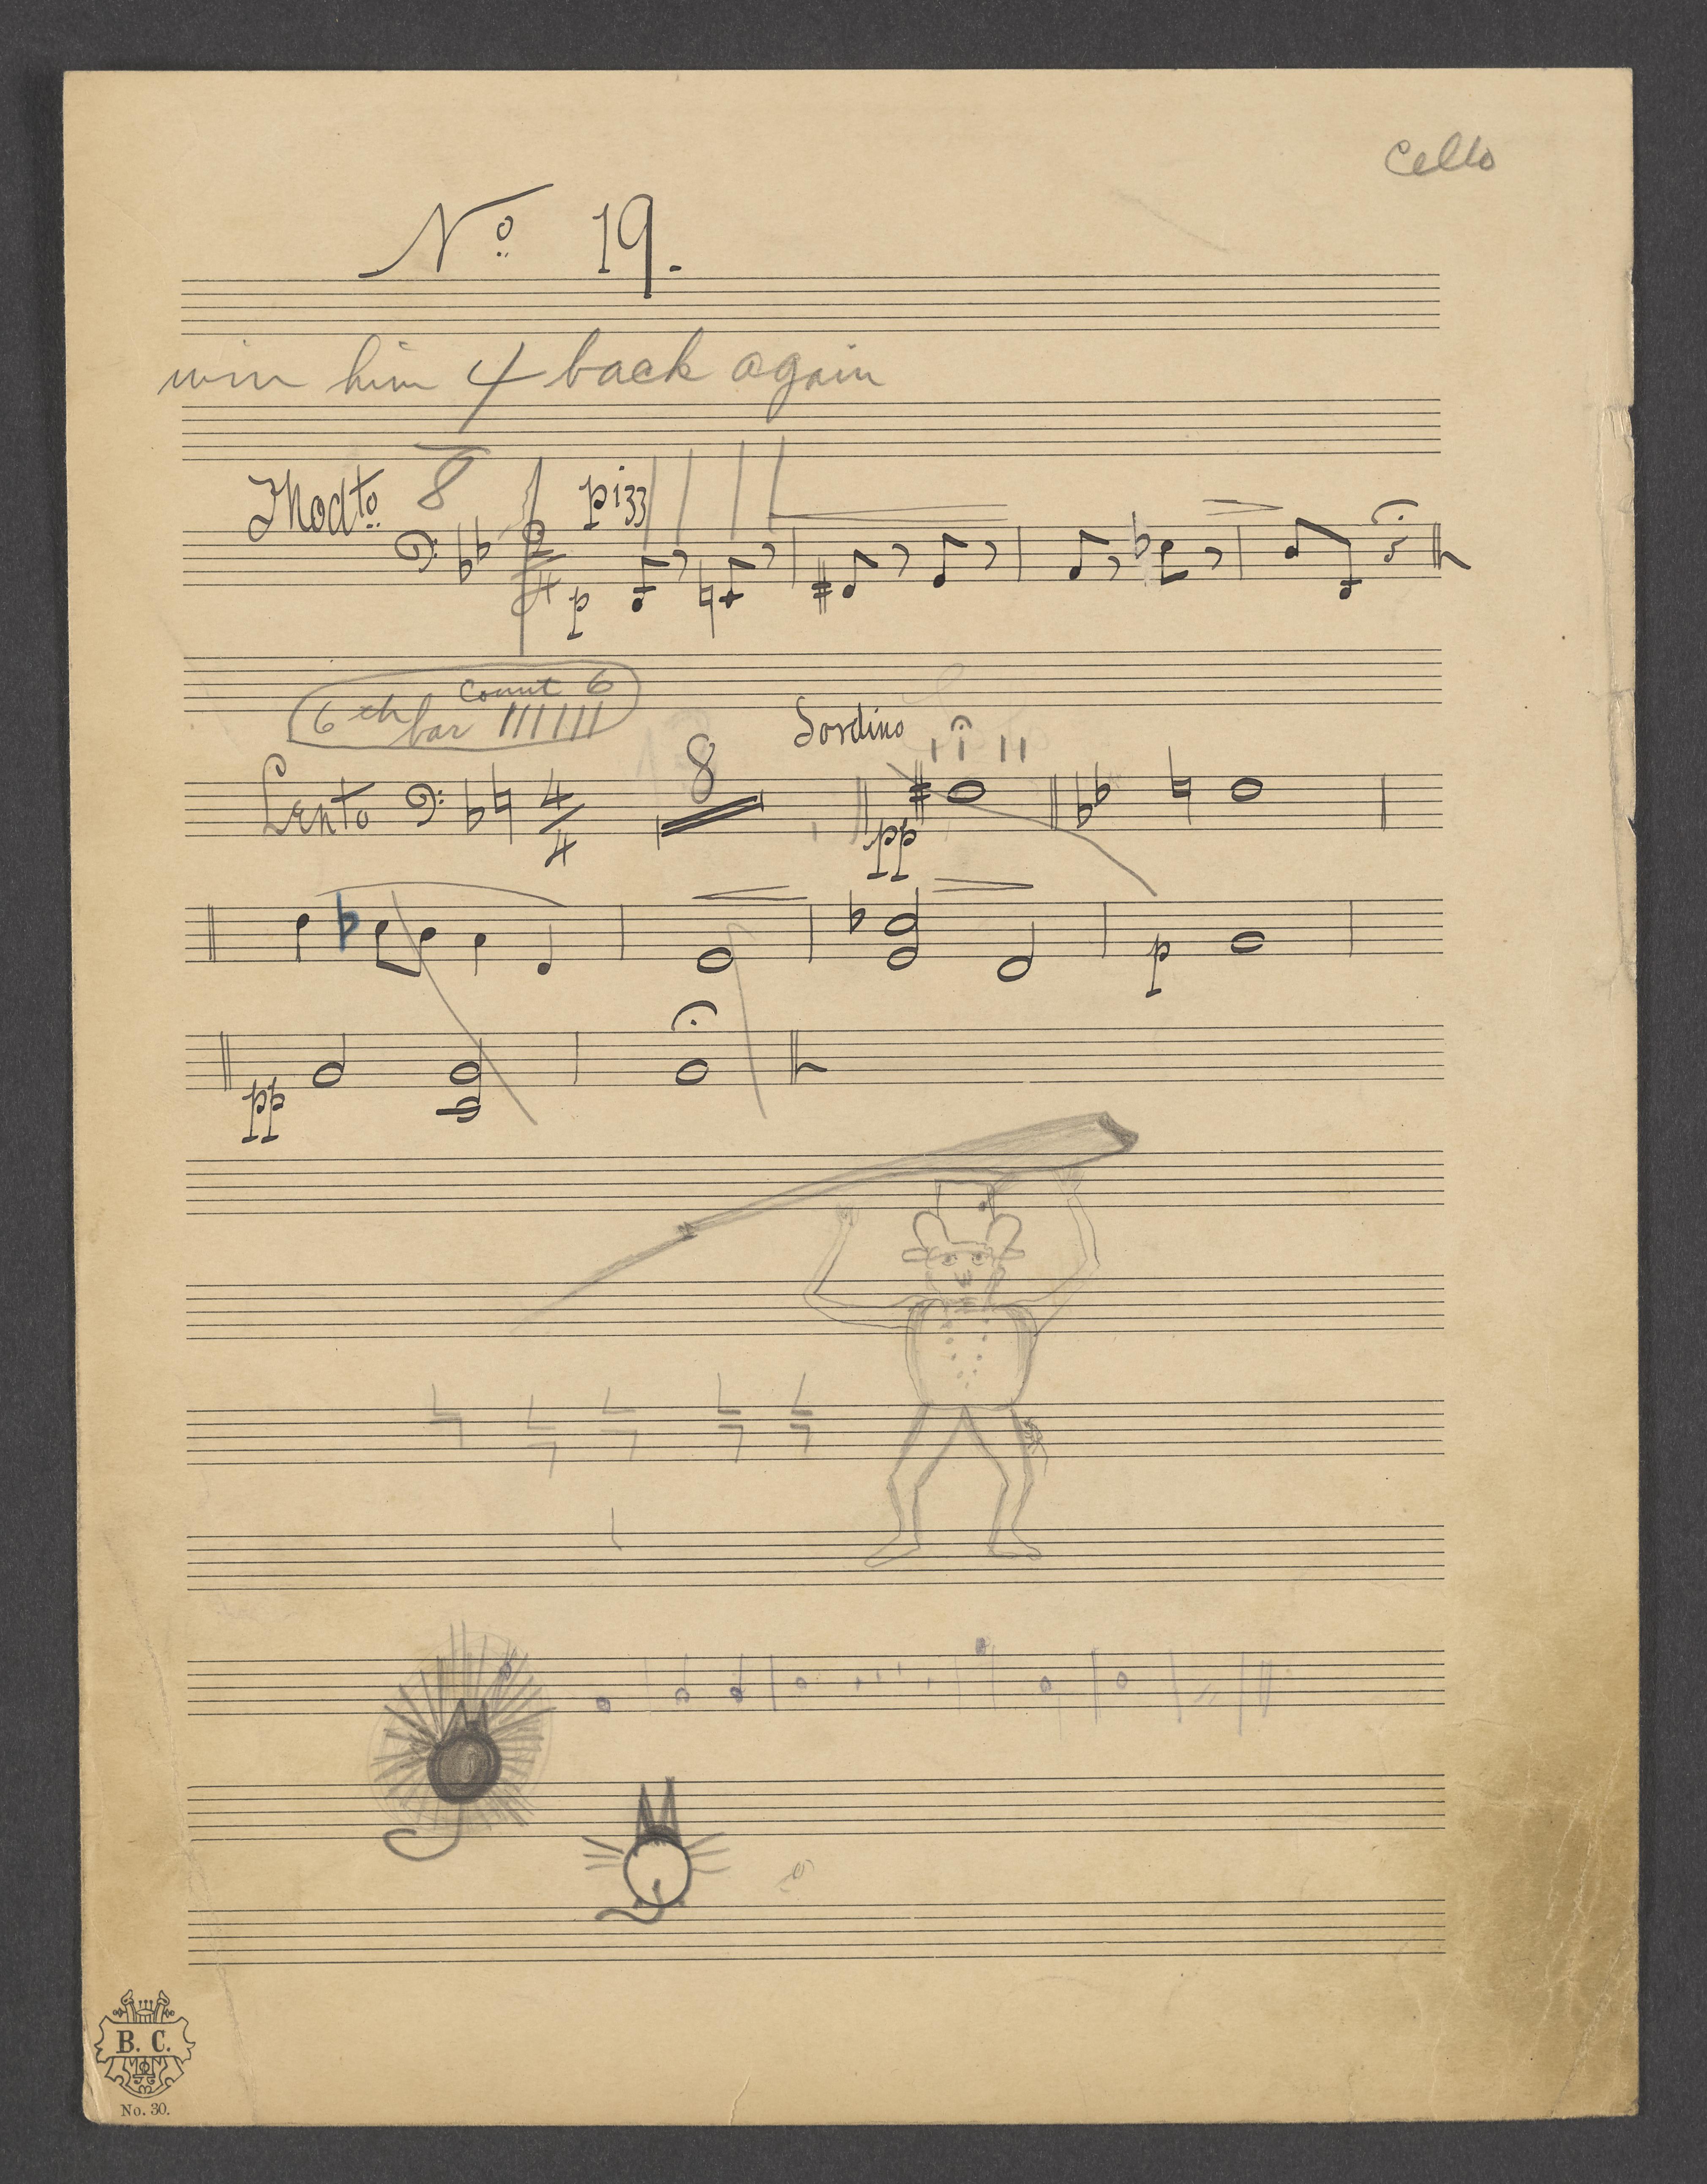 Cello
No 19.
win him 4 back again
8
Modto pizz
4 p
Count 6
6th bar
Sordino
8
Lento 4
4
pp
p
pp
B. C.
No. 30.